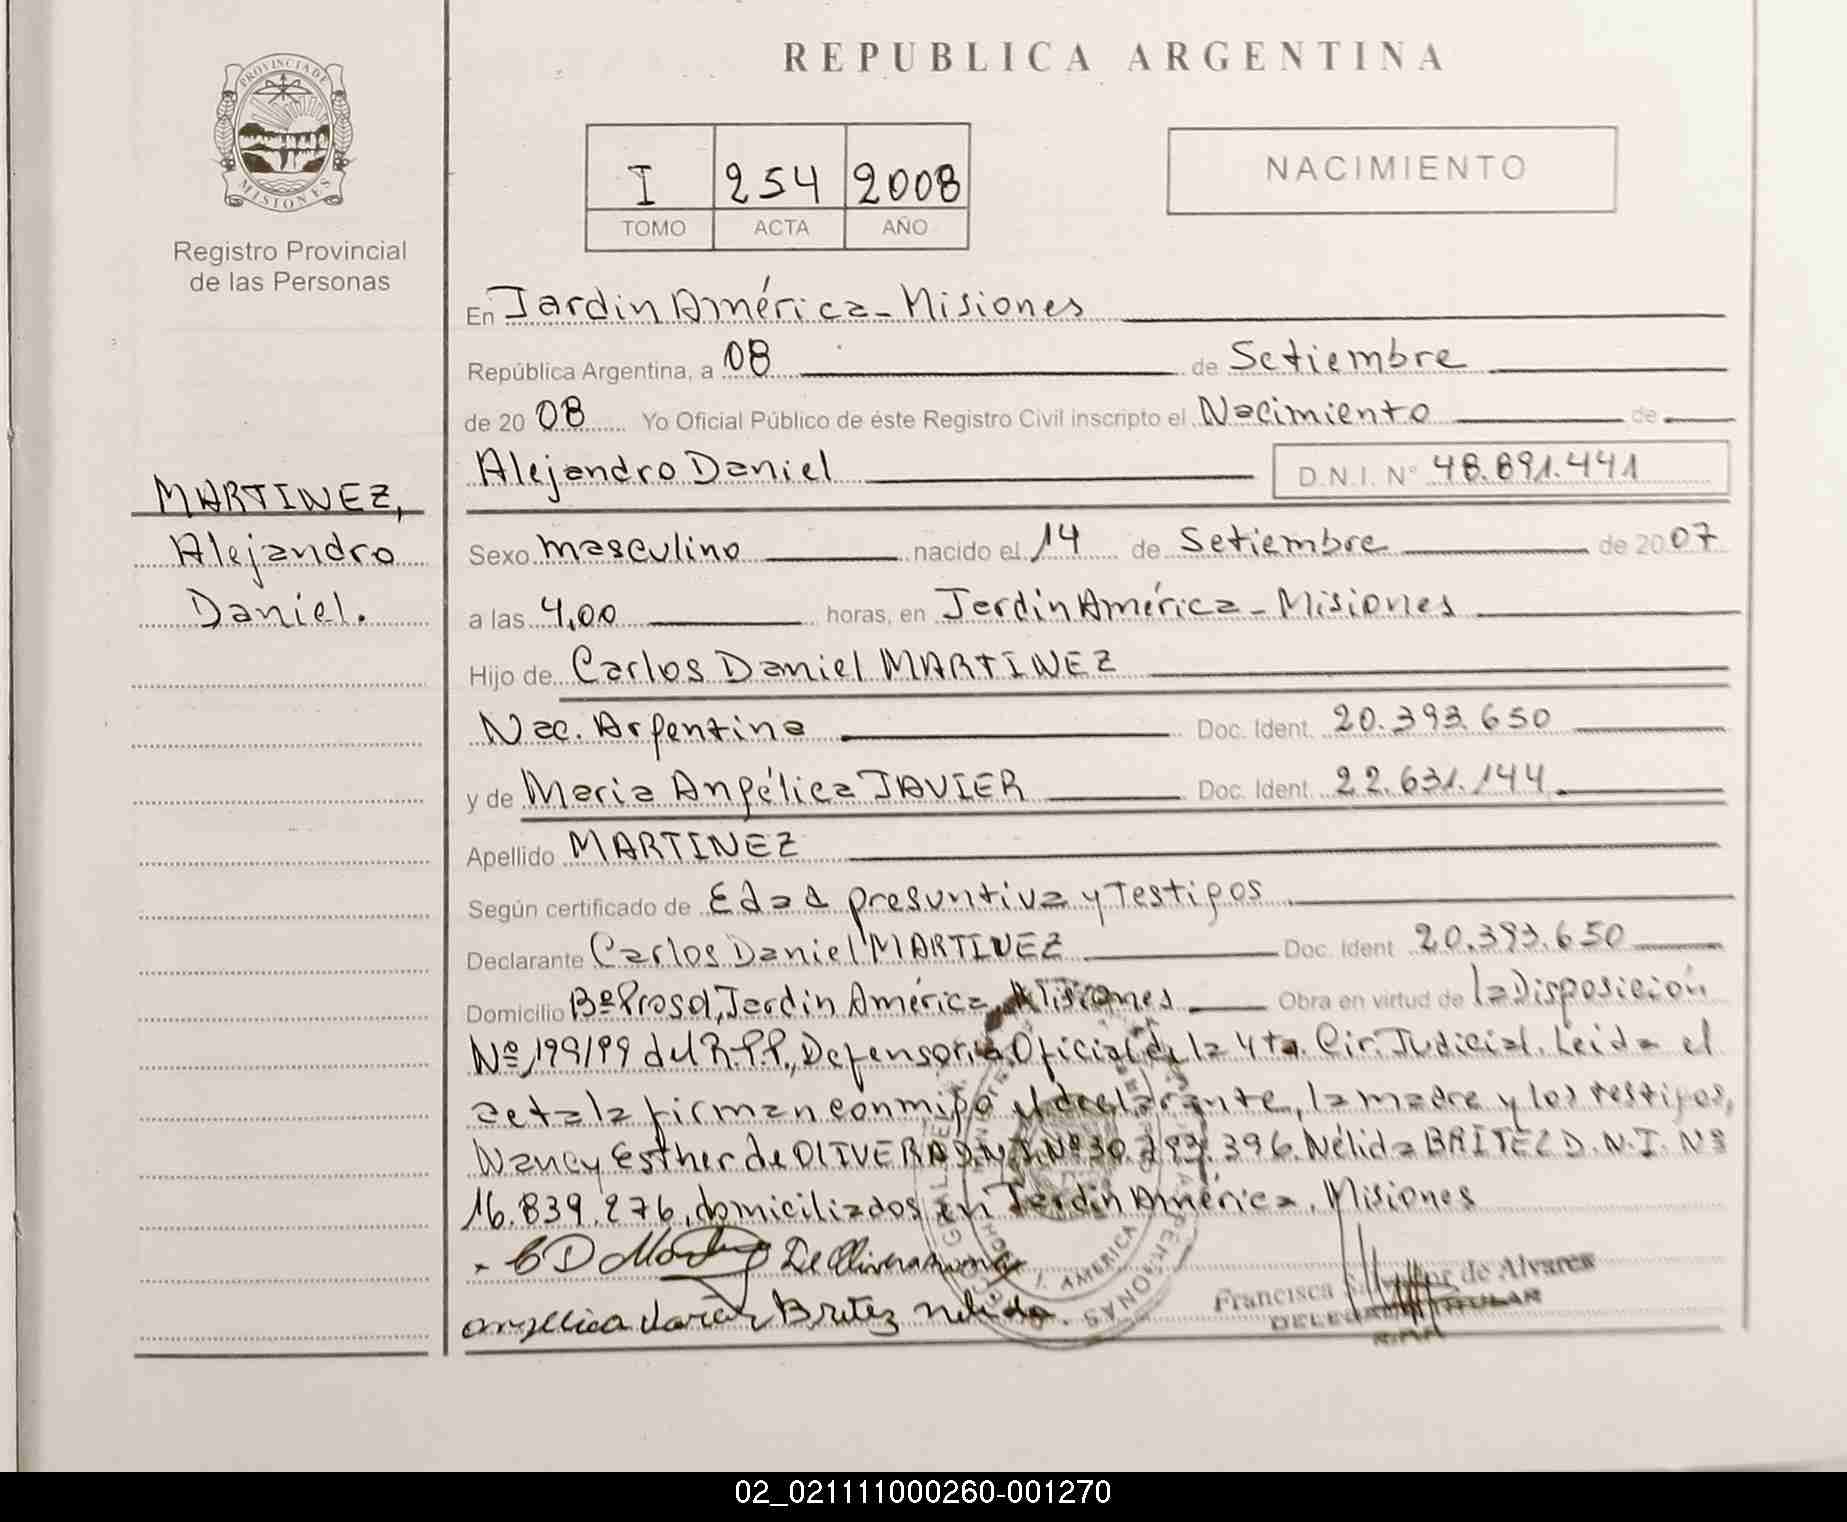 REPUBLICA ARGENTINA
PROVINCIA DE
MISIONES
Registro Provincial
de las Personas
I 254 2008
TOMO ACTA AÑO
NACIMIENTO
En Jardin América - Misiones
República Argentina, a 08 de Setiembre
de 20 08 Yo Oficial Público de éste Registro Civil inscripto el Nacimiento de
Alejandro Daniel D.N.I. N° 48.891.441
MARTINEZ,
Alejandro
Daniel.
Sexo masculino nacido el 14 de Setiembre de 20 07
a las 4,00 horas, en Jardin América - Misiones
Hijo de Carlos Daniel MARTINEZ
Nac. Argentina Doc. Ident. 20.393.650
y de Maria Angélica JAVIER Doc. Ident. 22.631.144
Apellido MARTINEZ
Según certificado de Edad presuntiva y Testigos
Declarante Carlos Daniel MARTINEZ Doc. Ident 20.393.650
Domicilio Bº Prosol, Jardin América, Misiones Obra en virtud de la Disposición
Nº 199/99 del R.P.P., Defensoria Oficial de la 4ta. Cir. Judicial. Leida el
acta la firman conmigo el declarante, la madre y los testigos,
Nancy Esther de OLIVERA D.N.I. Nº 30.793.396. Nélida BRITEZ D.N.I. Nº
16.839.276, domiciliados en Jardin América, Misiones
C D De Olivera
Britez Nelida
Francisca de Alvares
DELEGADA TITULAR
J. AMERICA
02_021111000260-001270